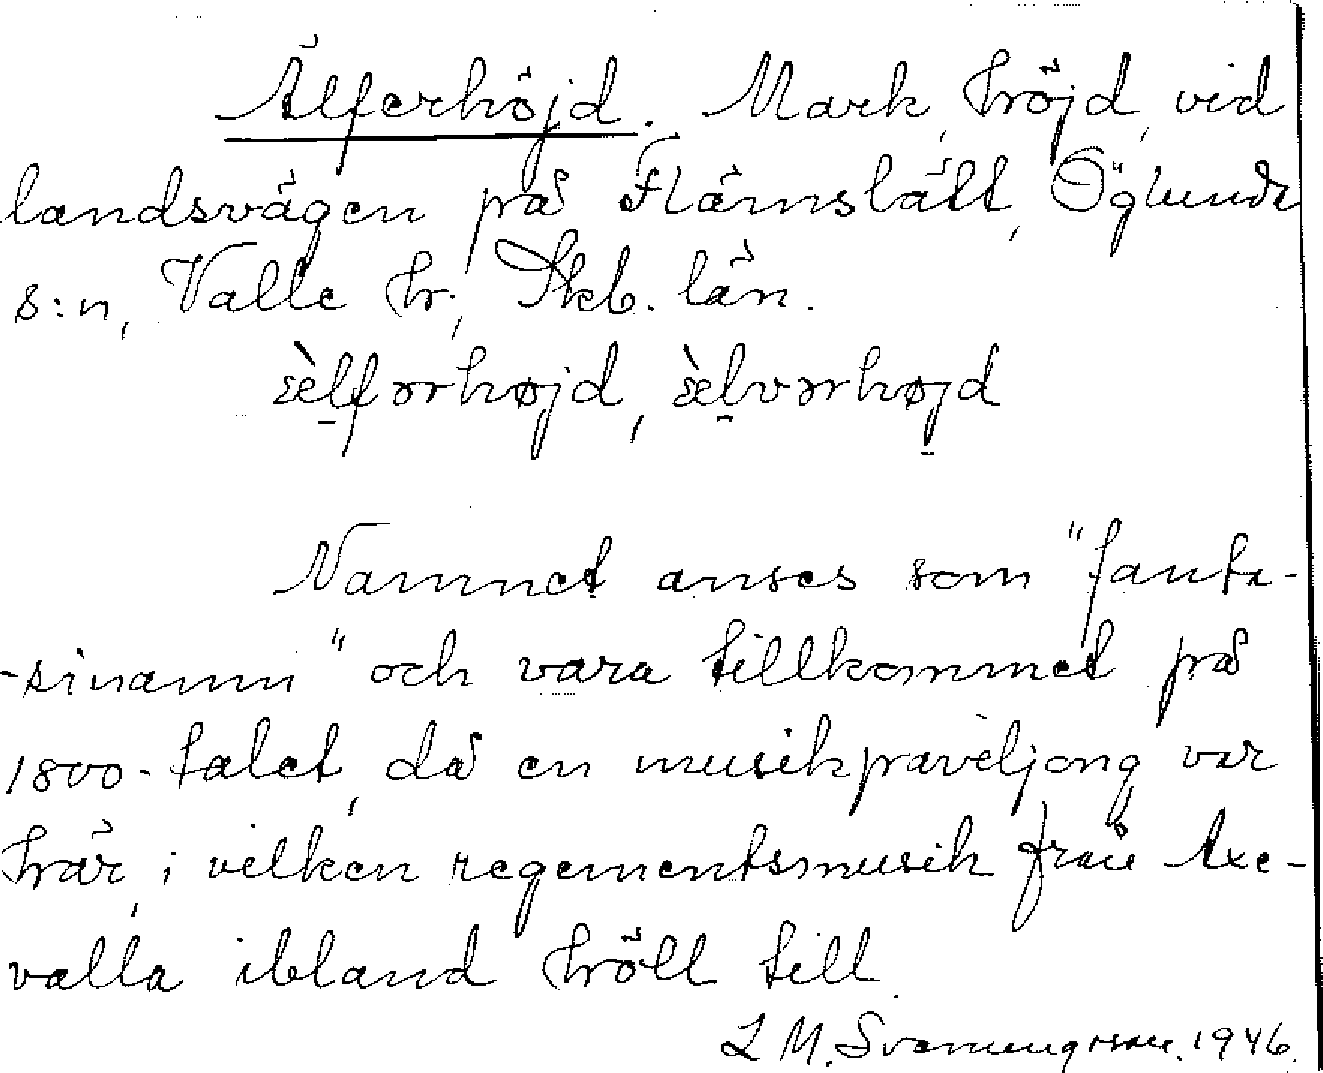 Älferhöjd. Mark, höjd, vid
landsvägen på Flämslätt, Öglunda
s:n, Valle hr, Skb. län.
æ̀lfərhøjd, æ̀lvərhøjd
Namnet anses som "fanta-
-sinamn" och vara tillkommet på
1800-talet, då en musikpaveljong var
här, i vilken regementsmusik från Axe-
valla ibland höll till.
L M. Svenungsson. 1946.